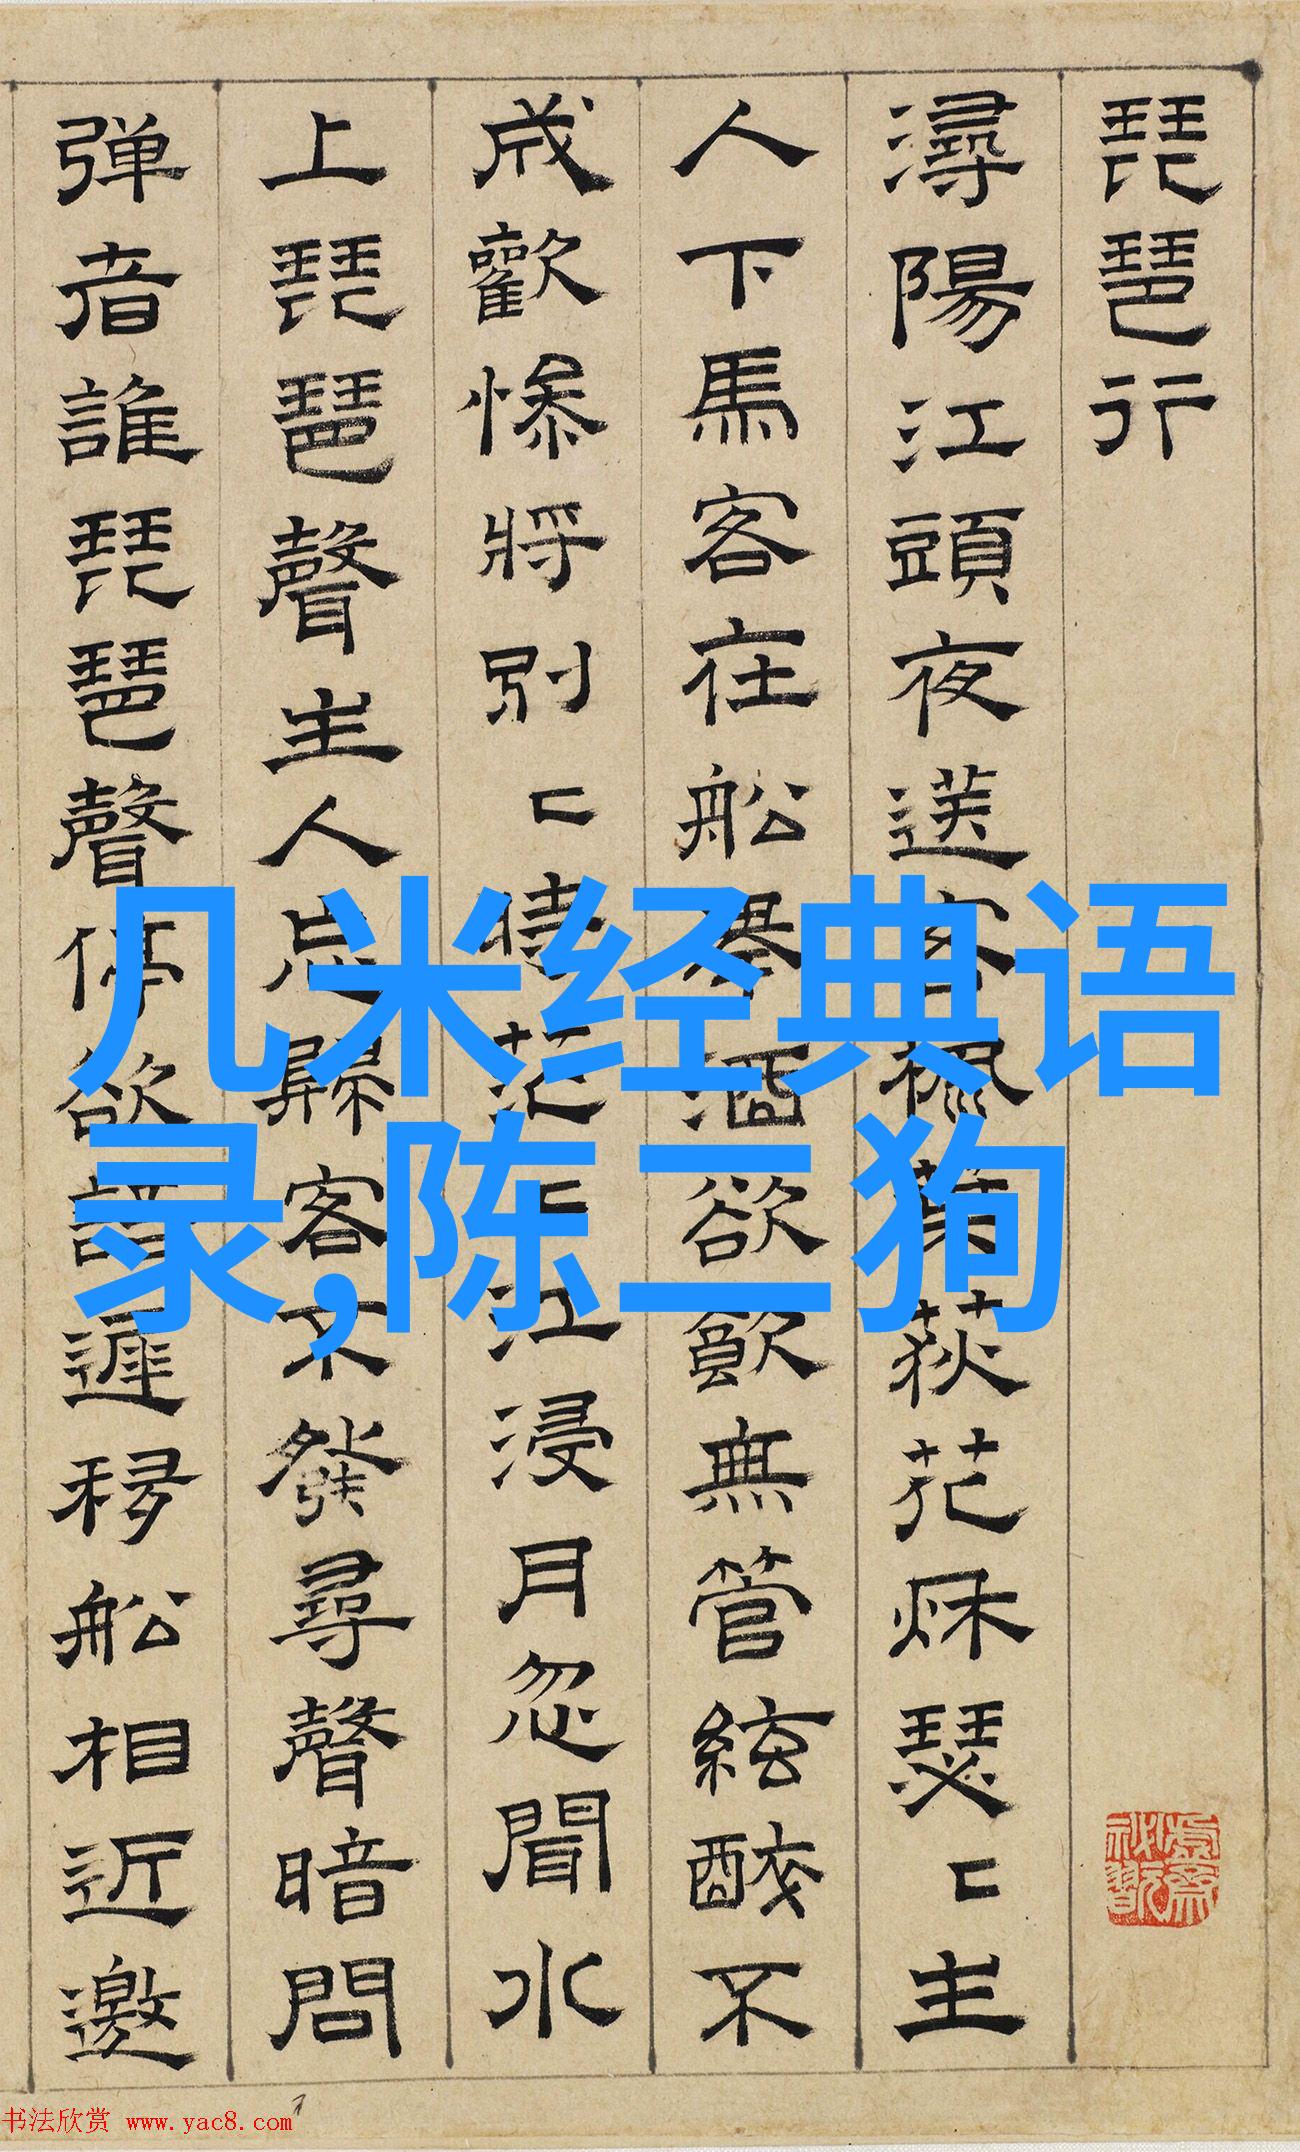 琵琶行
潯陽江頭夜送客楓葉荻花秌瑟〻主
人下馬客在船舉酒欲飲無管絃醉不
成歡慘將別〻時茫〻江浸月忽聞水
上琵琶聲主人忘歸客不發尋聲暗問
彈者誰琵琶聲停欲語遲移船相近邀
几米经典语
录,陈二狗
书法欣赏 www.yac8.com